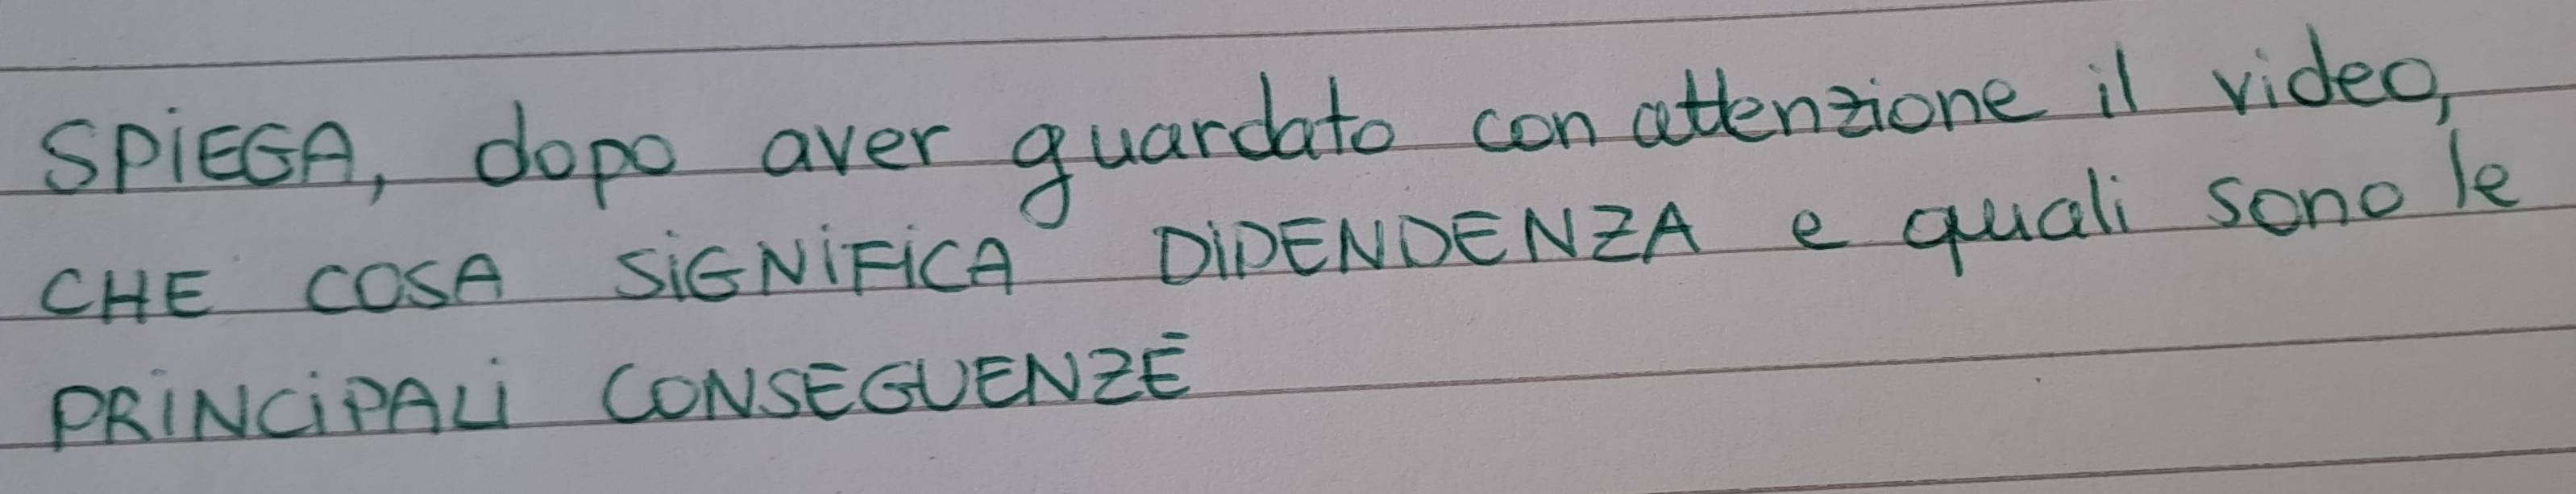 SPIEGA, dopo aver guardato con attenzione il video,
CHE COSA SIGNIFICA DIPENDENZA e quali sono le
PRINCIPALI CONSEGUENZE